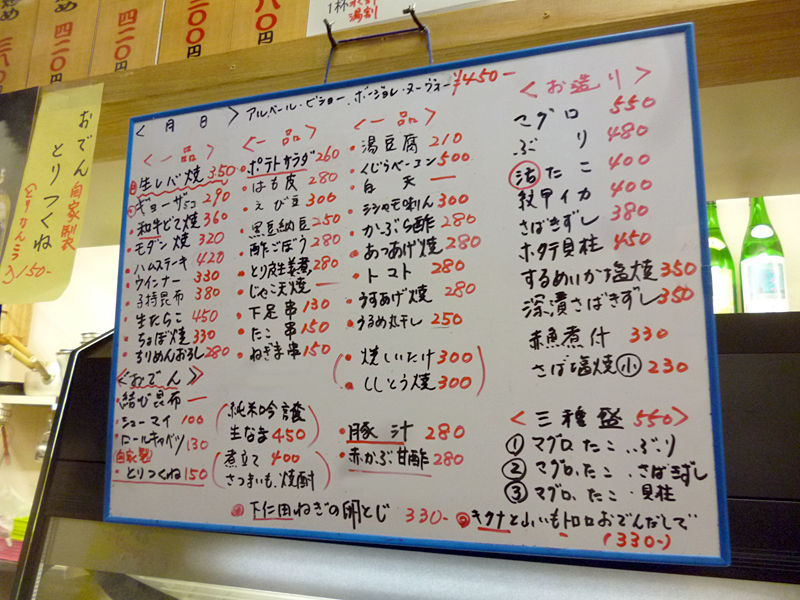 め
三八〇円
四二〇円
四二〇円
二〇〇円
八〇円
1杯
湯割
おでん
自家製
とりつくね
150-
<月 日>
アルベール・ビショー、ボージョレ・ヌーヴォー ¥450-
<一品>
生レバ焼 350
ギョーザ5コ 290
和牛どて焼 360
モダン焼 320
ハムステーキ 420
ウインナー 330
子持昆布 380
生たらこ 450
ちょぼ焼 330
ちりめんおろし 280
<おでん>
結び昆布 ー
シューマイ 100
ロールキャベツ 130
自家製
とりつくね 150
<一品>
ポテトサラダ 260
はも皮 280
えび豆 300
黒豆納豆 250
酢ごぼう 280
とり皮生姜煮 280
じゃこ天焼 ー
下足串 130
たこ串 150
ねぎま串 150
(純米吟醸
生なま 450)
(煮立て 400
さつまいも焼酎)
<一品>
湯豆腐 210
くじらベーコン 500
白天 ー
シシャモ味りん 300
かぶら酢 280
あつあげ焼 280
トマト 280
うすあげ焼 280
うるめ丸干し 250
(焼しいたけ 300
ししとう焼 300)
豚汁 280
赤かぶ甘酢 280
<お造り>
マグロ 550
ぶり 480
活たこ 400
紋甲イカ 400
さばきずし 380
ホタテ貝柱 450
するめいか塩焼 350
深漬さばきずし 350
赤魚煮付 330
さば塩焼 小 230
<三種盛 550>
① マグロ、たこ、ぶり
② マグロ、たこ、さばきずし
③ マグロ、たこ・貝柱
下仁田ねぎの卵とじ 330-
キクナと山いもトロロおでんだしで
(330-)